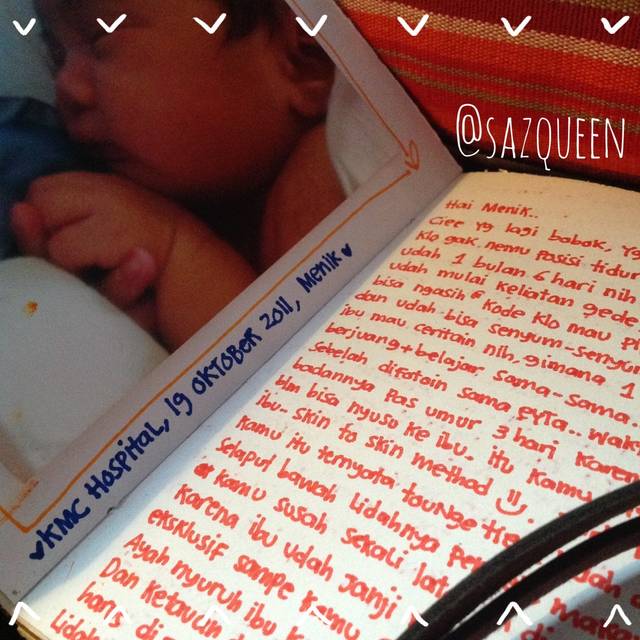 @SAZQUEEN
♥KMC HOSPITAL, 19 OKTOBER 2011, MENIK♥
Hai Menik..
Ciee yg lagi bobok, yg
klo gak nemu posisi tidur
udah 1 bulan 6 hari nih
udah mulai keliatan gede
bisa ngasih kode klo mau pi
dan udah bisa senyum-senyum
ibu mau ceritain nih, gimana 1
berjuang+belajar sama-sama.
Sebelah difotoin sama eyta. wak
badannya pas umur 3 hari karen
blm bisa nyusu ke ibu. itu kamu
ibu- skin to skin method
kamu itu ternyata tounge tie
Selaput bawah lidahnya pen
kamu susah sekali lat
karena ibu udah janji
eksklusif sampe kamu
Ayah nyuruh ibu k
Dan ketaucin d
harus di
lidah